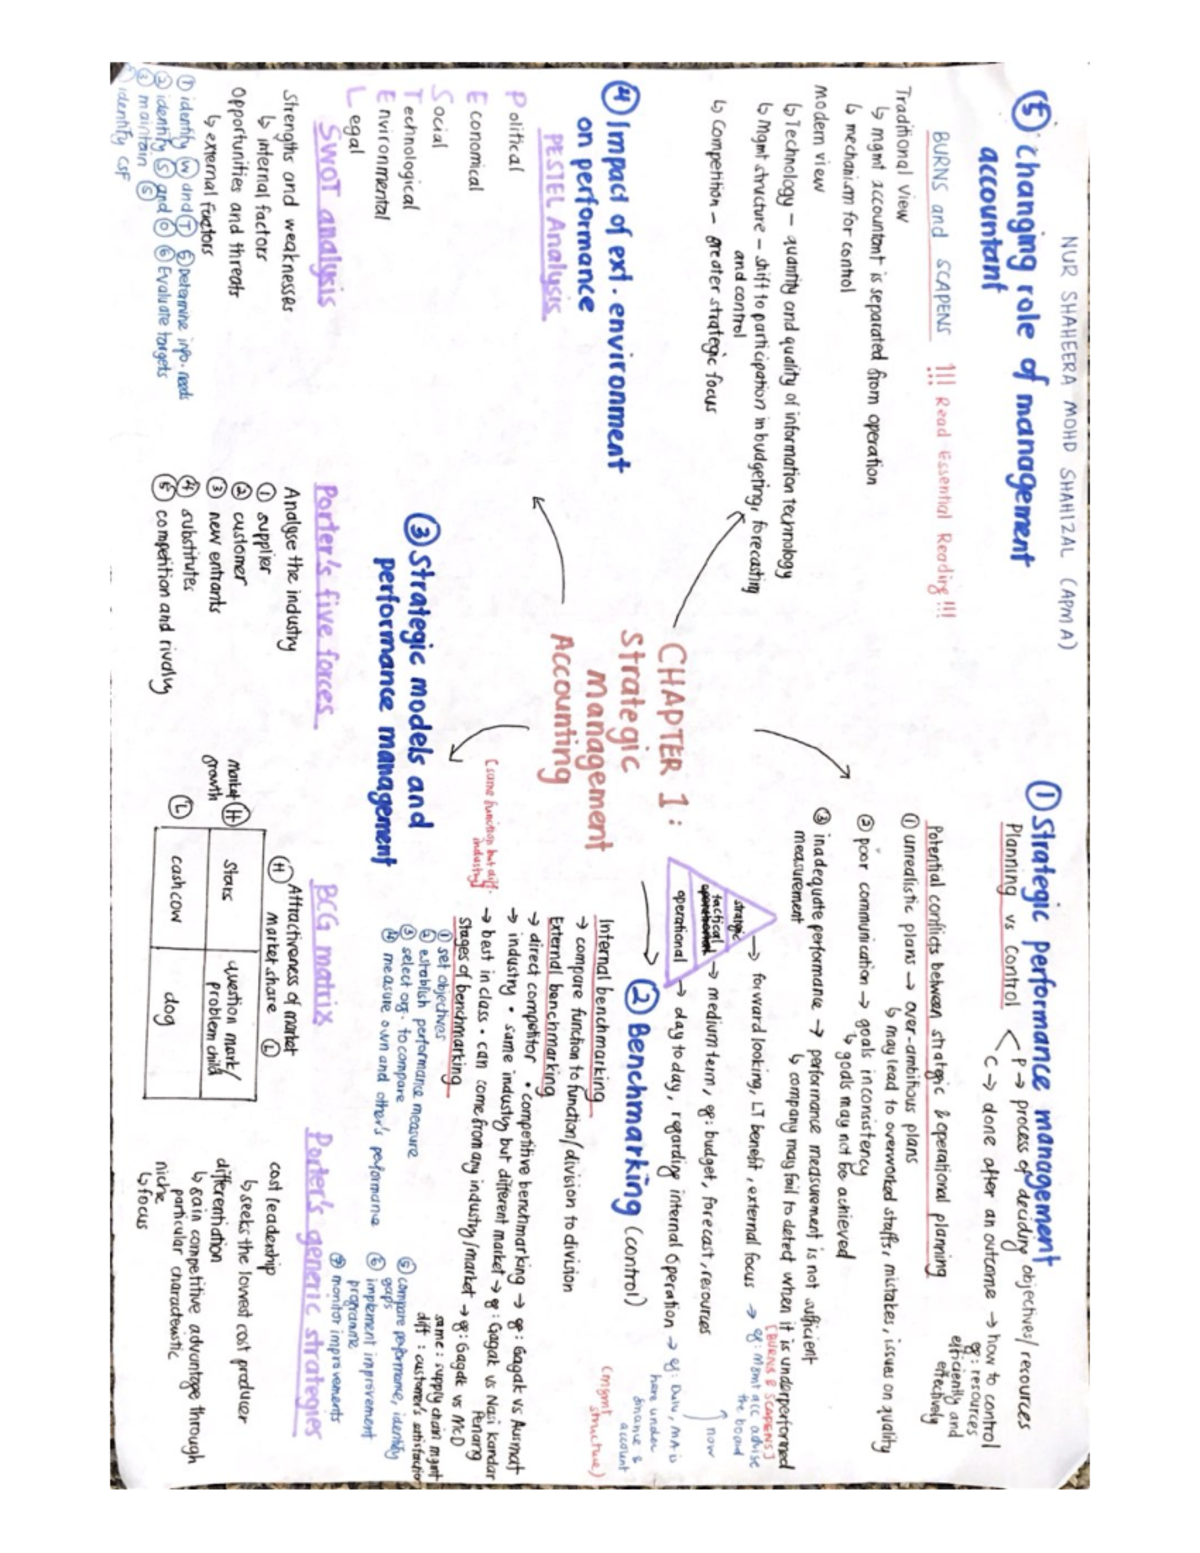 NUR SHAHEERA MOHD SHAHIZAL (APM A)
⑤ Changing role of management
accountant
BURNS and SCAPENS !!! Read Essential Reading !!!
Traditional view
↳ mgmt accountant is separated from operation
↳ mechanism for control
modern view
↳ Technology – quantity and quality of information technology
↳ Mgmt structure – shift to participation in budgeting, forecasting
and control
↳ Competition – greater strategic focus
④ Impact of ext. environment
on performance
PESTEL Analysis
Political
Economical
Social
Technological
Environmental
Legal
SWOT analysis
Strengths and weaknesses
↳ internal factors
Opportunities and threats
↳ external factors
① identify Ⓦ and Ⓣ ⑤ Determine info. needs
② identify Ⓢ and Ⓞ ⑥ Evaluate targets
③ maintain Ⓢ
identify CSF
CHAPTER 1:
Strategic
management
Accounting
① Strategic performance management
Planning vs Control < P → process of deciding objectives/resources
C → done after an outcome → how to control
eg: resources
efficiently and
effectively
Potential conflicts between strategic & operational planning
① unrealistic plans → over-ambitious plans
↳ may lead to overworked staffs, mistakes, issues on quality
② poor communication → goals inconsistency
↳ goals may not be achieved
③ inadequate performance → performance measurement is not sufficient
measurement
↳ company may fail to detect when it is underperformed
[BURNS & SCAPENS]
strategic → forward looking, LT benefit, external focus → eg: mgmt acc advise
the board
now
operational
tactical → medium term, eg: budget, forecast, resources
operational → day to day, regarding internal operation → eg: Dulu, MA is
here under
finance &
account
(mgmt
structure)
② Benchmarking (control)
Internal benchmarking
→ compare function to function/division to division
External benchmarking
→ direct competitor • competitive benchmarking → eg: Gagak vs Ausmat
→ industry • same industry but different market → eg: Gagak vs Nasi Kandar
Penang
→ best in class • can come from any industry/market → eg: Gagak vs McD
[same function but diff.
industry]
same: supply chain mgmt
diff: customer's satisfaction
Stages of benchmarking
① set objectives
② establish performance measure
③ select org. to compare
④ measure own and other's performance
⑤ compare performance, identify
gaps
⑥ implement improvement
programme
⑦ monitor improvements
③ Strategic models and
performance management
Porter's five forces
Analyse the industry
① supplier
② customer
③ new entrants
④ substitutes
⑤ competition and rivalry
BCG matrix
Attractiveness of market
Ⓗ market share Ⓛ
market Ⓗ
growth
Stars
question mark/
problem child
Ⓛ
cash cow
dog
Porter's generic strategies
cost leadership
↳ seeks the lowest cost producer
differentiation
↳ gain competitive advantage through
particular characteristic
niche
↳ focus